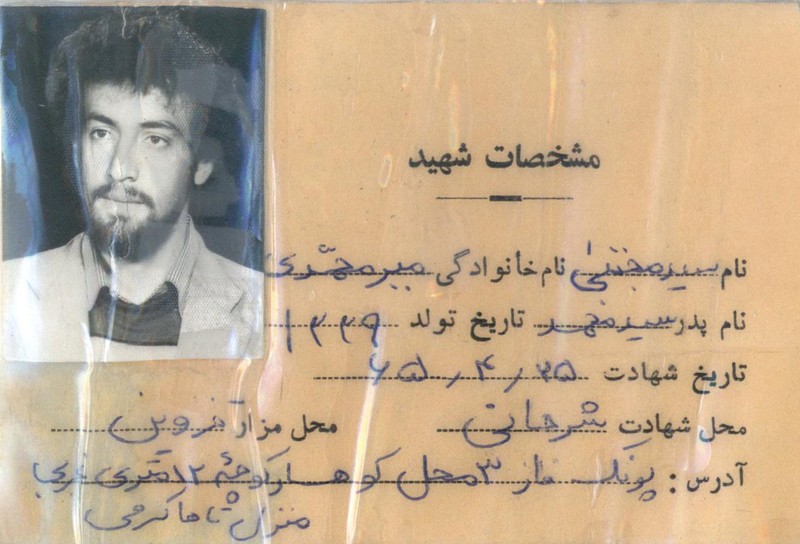 مشخصات شهید
نام سید مجتبی نام خانوادگی میرمهدی
نام پدر سید تاریخ تولد ۱۳۳۹
تاریخ شهادت ۶۵٫۴٫۲۵
محل شهادت شرهانی محل مزار قزوین
آدرس: پونک فاز ۳ محل کوچه ۱۲ متری غربی
منزل